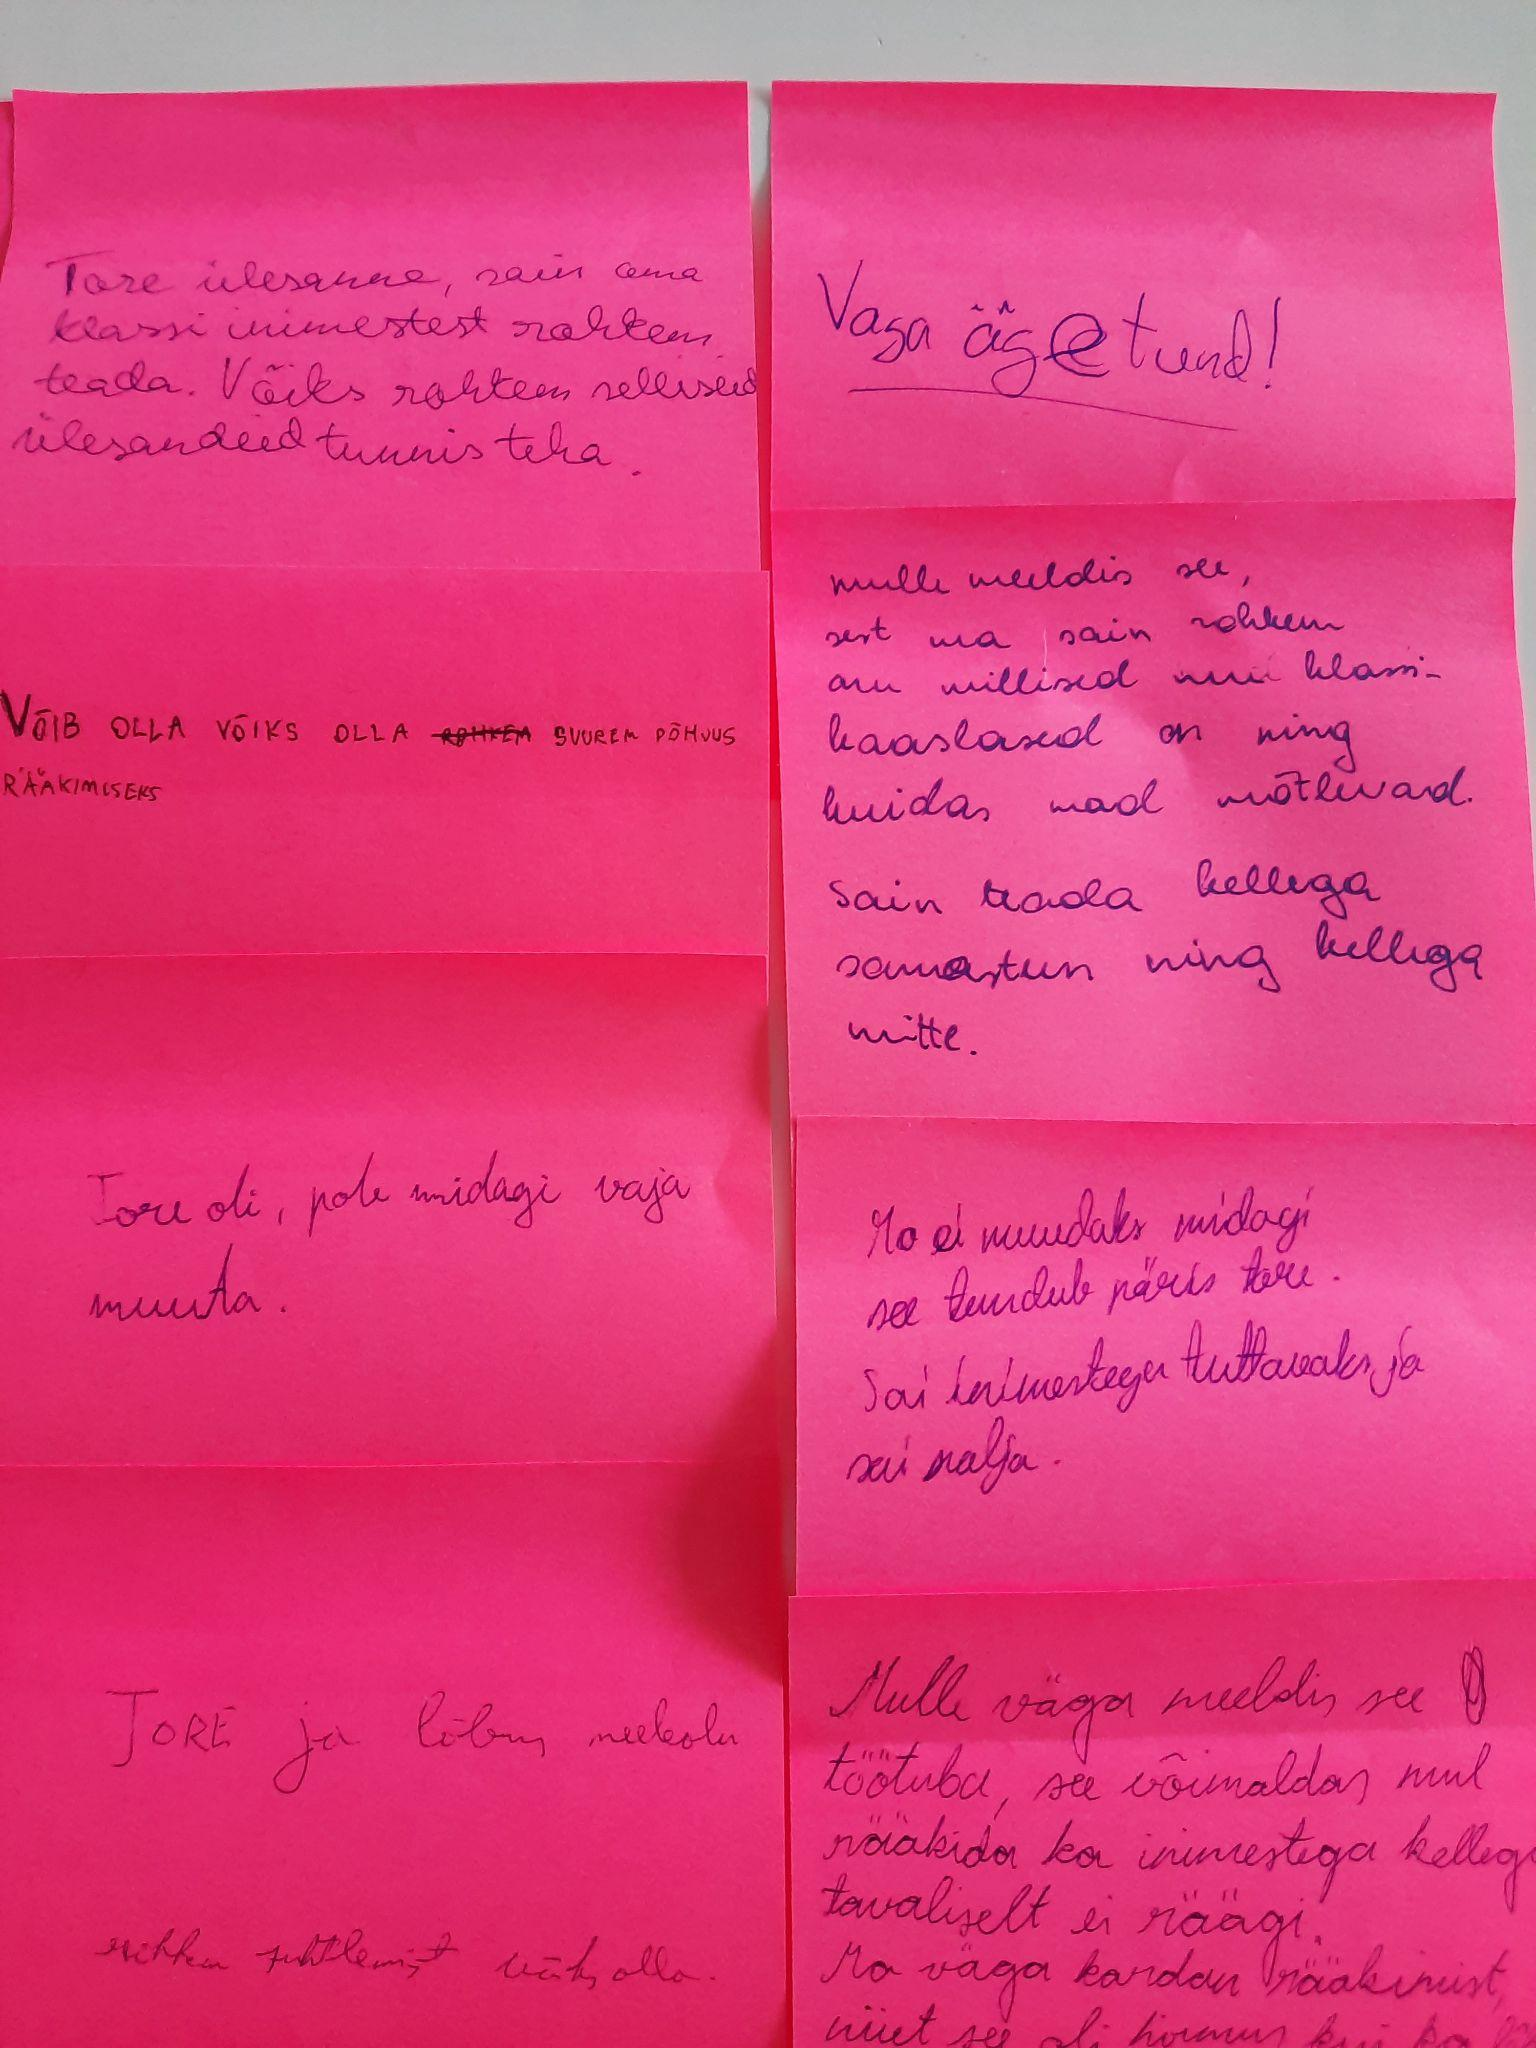 Tore ülesanne, sain oma
klassi inimestest rohkem
teada. Võiks rohkem selliseid
ülesandeid tunnis teha.
VÕIB OLLA VÕIKS OLLA ROHKEM SUUREM PÕHJUS
RÄÄKIMISEKS
Tore oli, pole midagi vaja
muuta.
TORE ja lõbus meeleolu
rohkem suhtlemist võiks olla.
Väga äge tund!
mulle meeldis see,
sest ma sain rohkem
aru millised mu klassi-
kaaslased on ning
kuidas nad mõtlevad.
Sain teada kellega
samastun ning kellega
mitte.
Ma ei muudaks midagi
see tundub päris tore.
Sai inimestega tuttavaks ja
sai nalja.
Mulle väga meeldis see
töötuba, see võimaldas mul
rääkida ka inimestega kellega
tavaliselt ei räägi.
Ma väga kardan rääkimist,
see oli